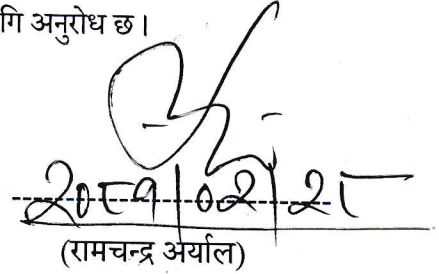 गि अनुरोध छ।
२०८१|०२|२८
(रामचन्द्र अर्याल)